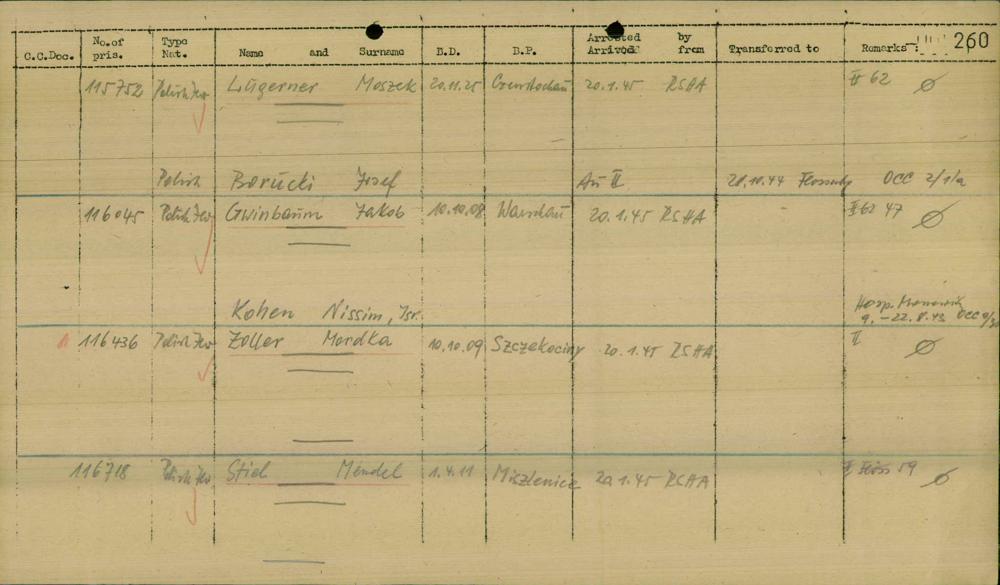 C.C.Doc. No.of pris. Type Nat. Name and Surname B.D. B.P. Arrested Arrived by from Transferred to Remarks: 260
115752 Polish Jew Lügerner Moszek 20.11.25 Czenstochau 20.1.45 RSHA II 62 Ø
Polish Borucki Josef Au II 20.10.44 OCC 2/1/a
116045 Polish Jew Gwinbaum Jakob 10.10.08 Warschau 20.1.45 RSHA II 62 47 Ø
Kohen Nissim, Isr. Hosp. Monowitz
9.-22.8.43
116436 Polish Jew Zoller Mordka 10.10.09 Szczekociny 20.1.45 RSHA II Ø
116718 Polish Jew Stiel Mendel 1.4.11 Miszlenice 20.1.45 RSHA 59 Ø